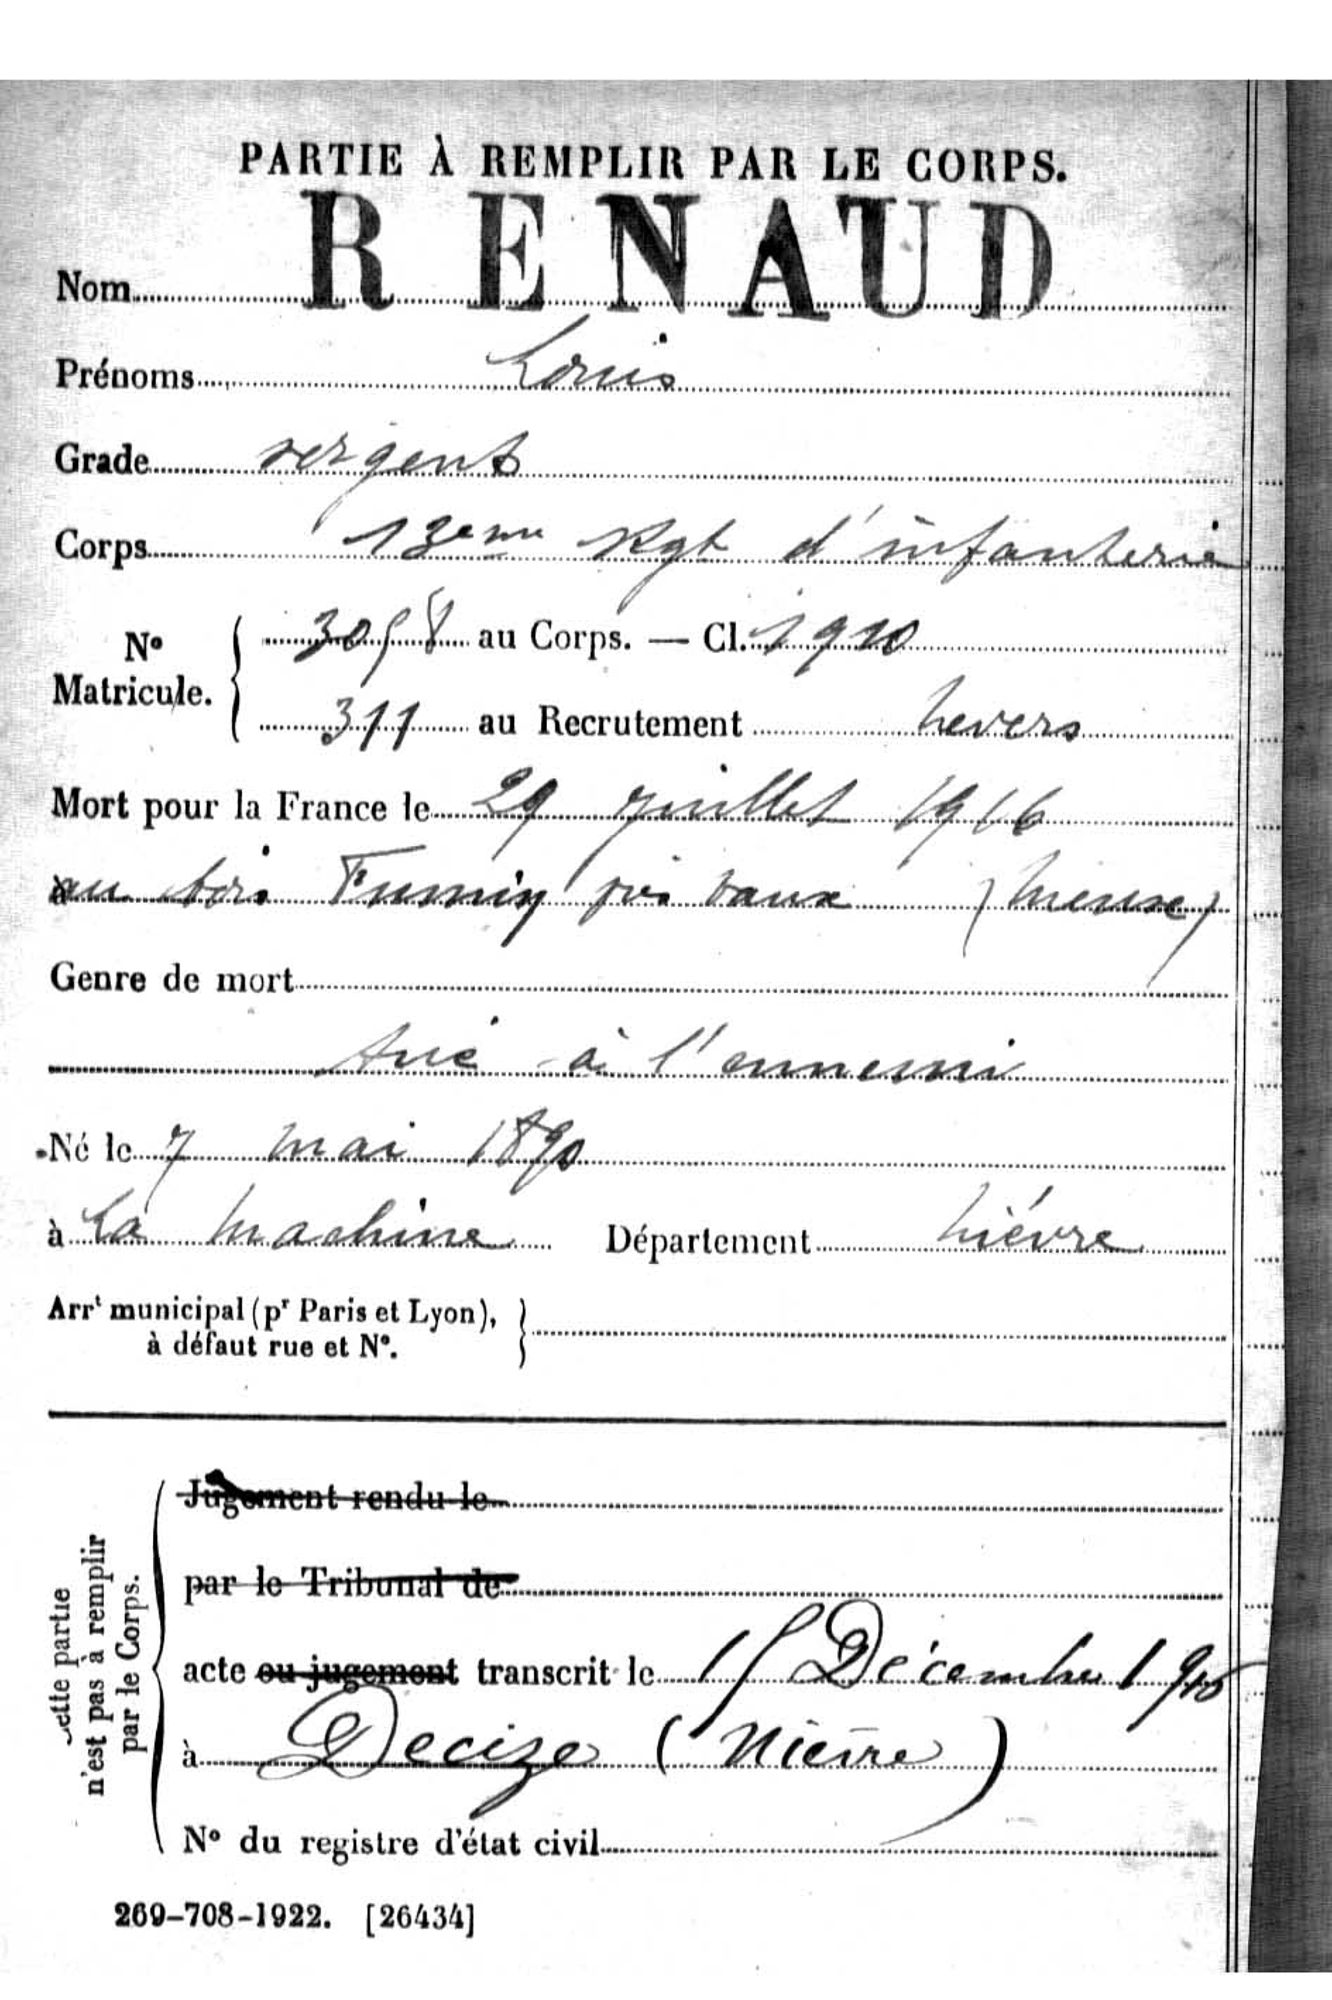 PARTIE À REMPLIR PAR LE CORPS.
Nom RENAUD
Prénoms Louis
Grade sergent
Corps 13eme Rgt d'infanterie
Nº Matricule. 3058 au Corps. — Cl. 1910
311 au Recrutement Nevers
Mort pour la France le 29 juillet 1916
au bois Fumin près Vaux (Meuse)
Genre de mort
tué à l'ennemi
Né le 7 mai 1890
à La Machine Département Nièvre
Arrt municipal (pr Paris et Lyon),
à défaut rue et Nº.
Cette partie
n'est pas à remplir
par le Corps.
Jugement rendu le
par le Tribunal de
acte ou jugement transcrit le 15 Décembre 1916
à Decize (Nièvre)
Nº du registre d'état civil
269-708-1922. [26434]